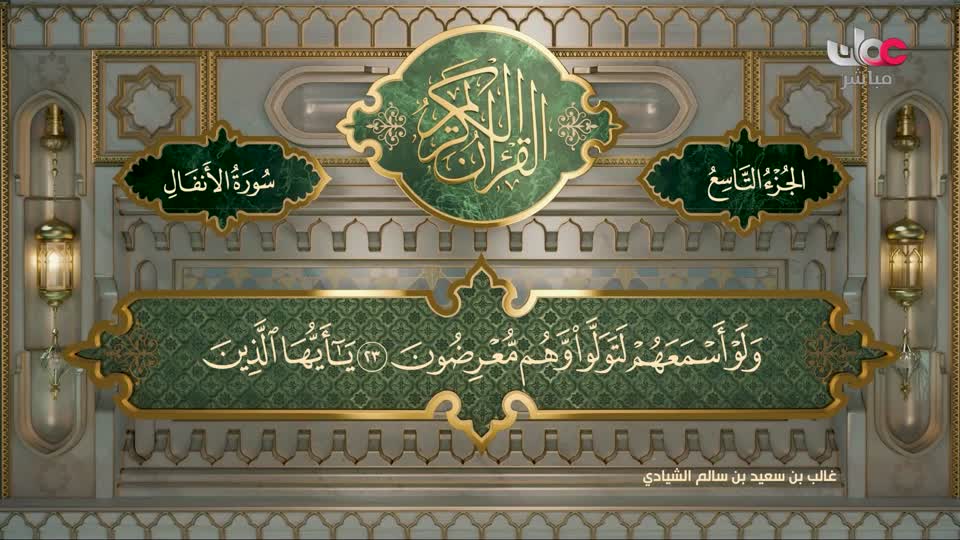 عمان
مباشر
القرءان الكريم
الجُزْءُ التَّاسِعُ
سُورَةُ الأَنفَالِ
وَلَوْ أَسْمَعَهُمْ لَتَوَلَّوا۟ وَّهُم مُّعْرِضُونَ ٢٣ يَـٰٓأَيُّهَا ٱلَّذِينَ
غالب بن سعيد بن سالم الشيادي